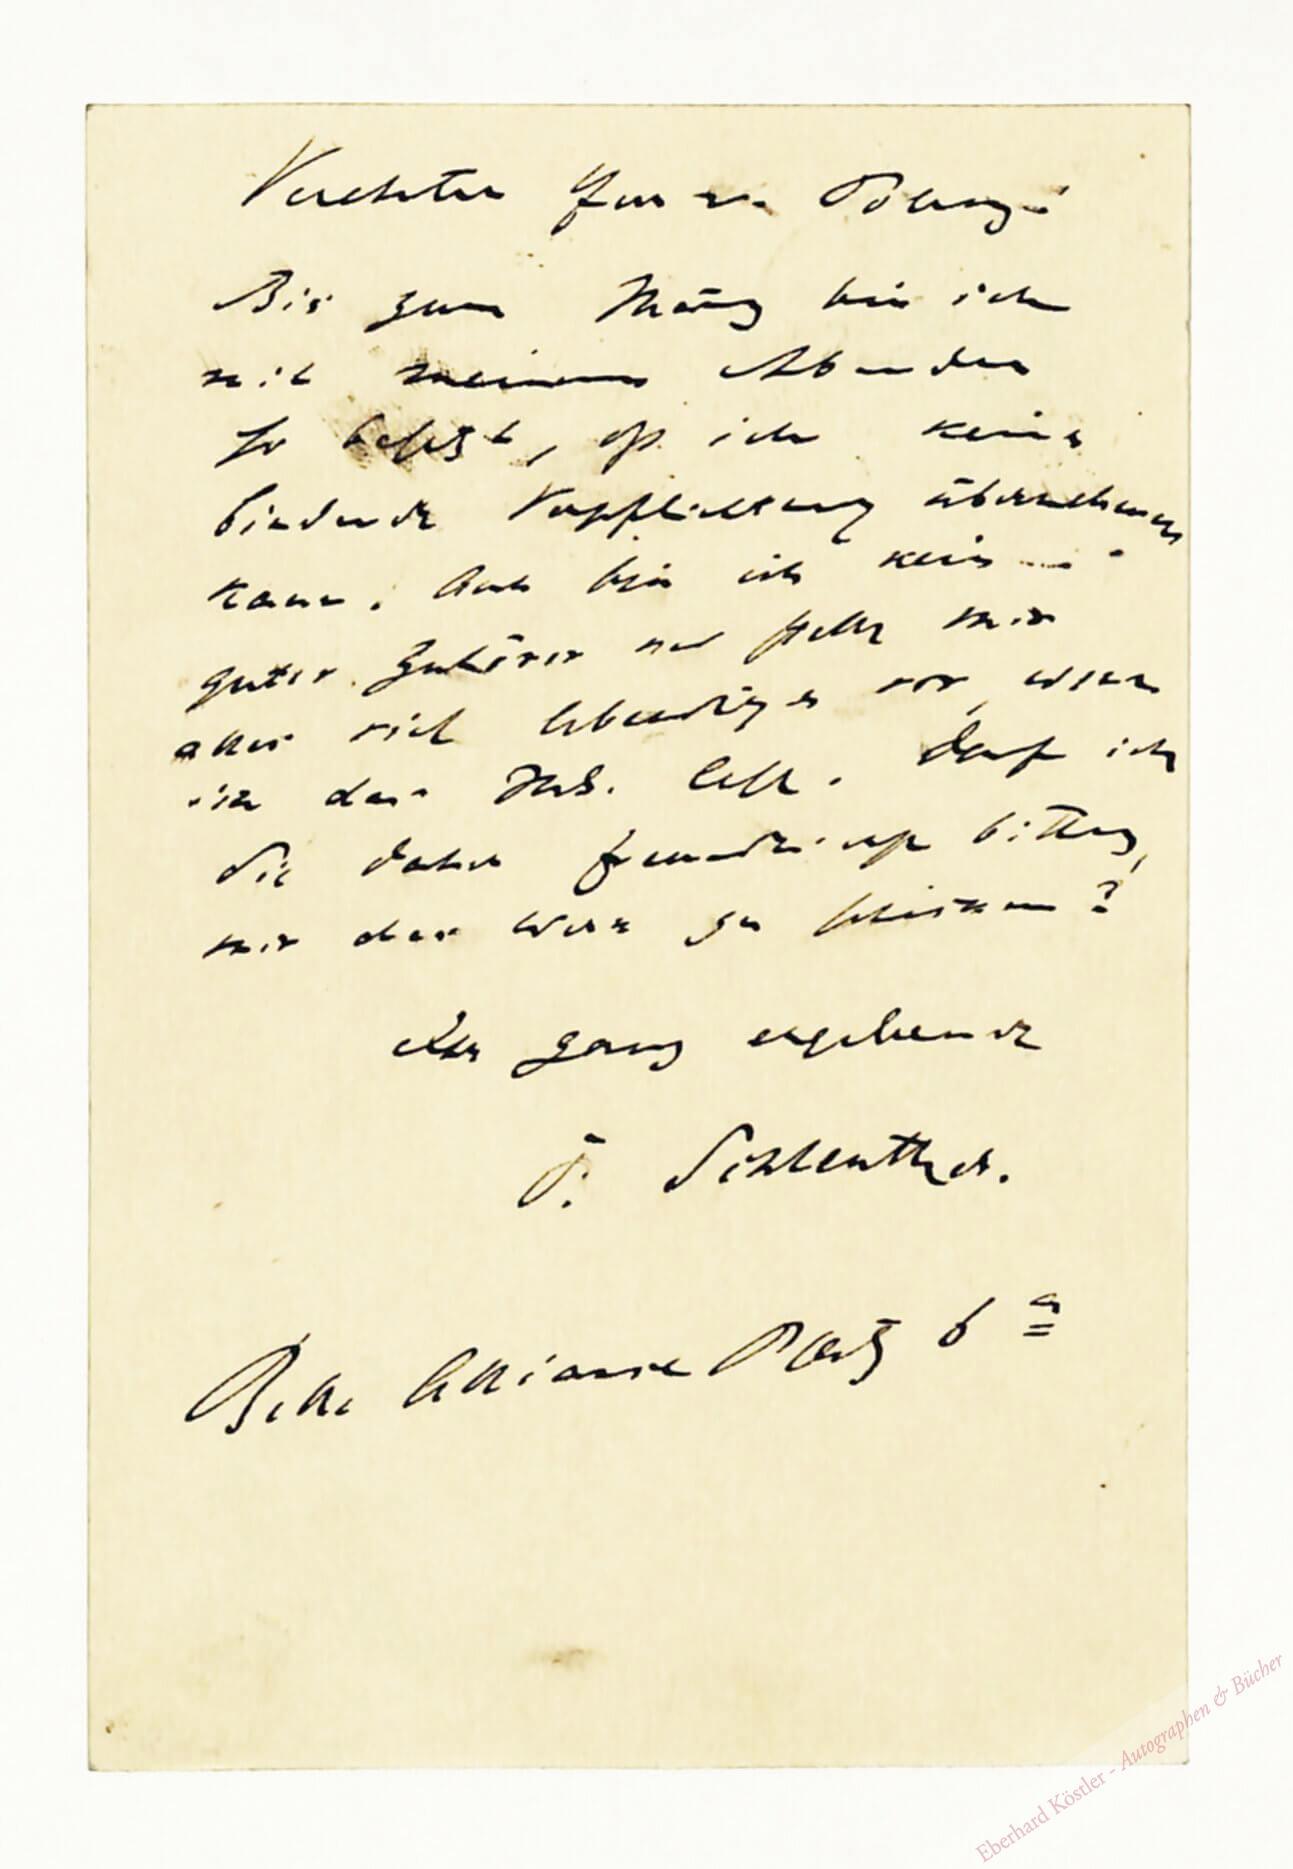 Verehrter Herr v. Polenz!
Bis zum März bin ich
mit meinen Abenden
so besetzt, dß ich keine
bindende Verpflichtung übernehmen
kann. Auch bin ich kein
guter Zuhörer und stelle mir
alles viel lebendiger vor, wenn
ich das Ms. lese. Darf ich
Sie daher freundlichst bitten,
mir das Werk zu schicken?
Ihr ganz ergebener
P. Schlenther.
Belle Alliance Platz 6 a
Eberhard Köstler - Autographen & Bücher